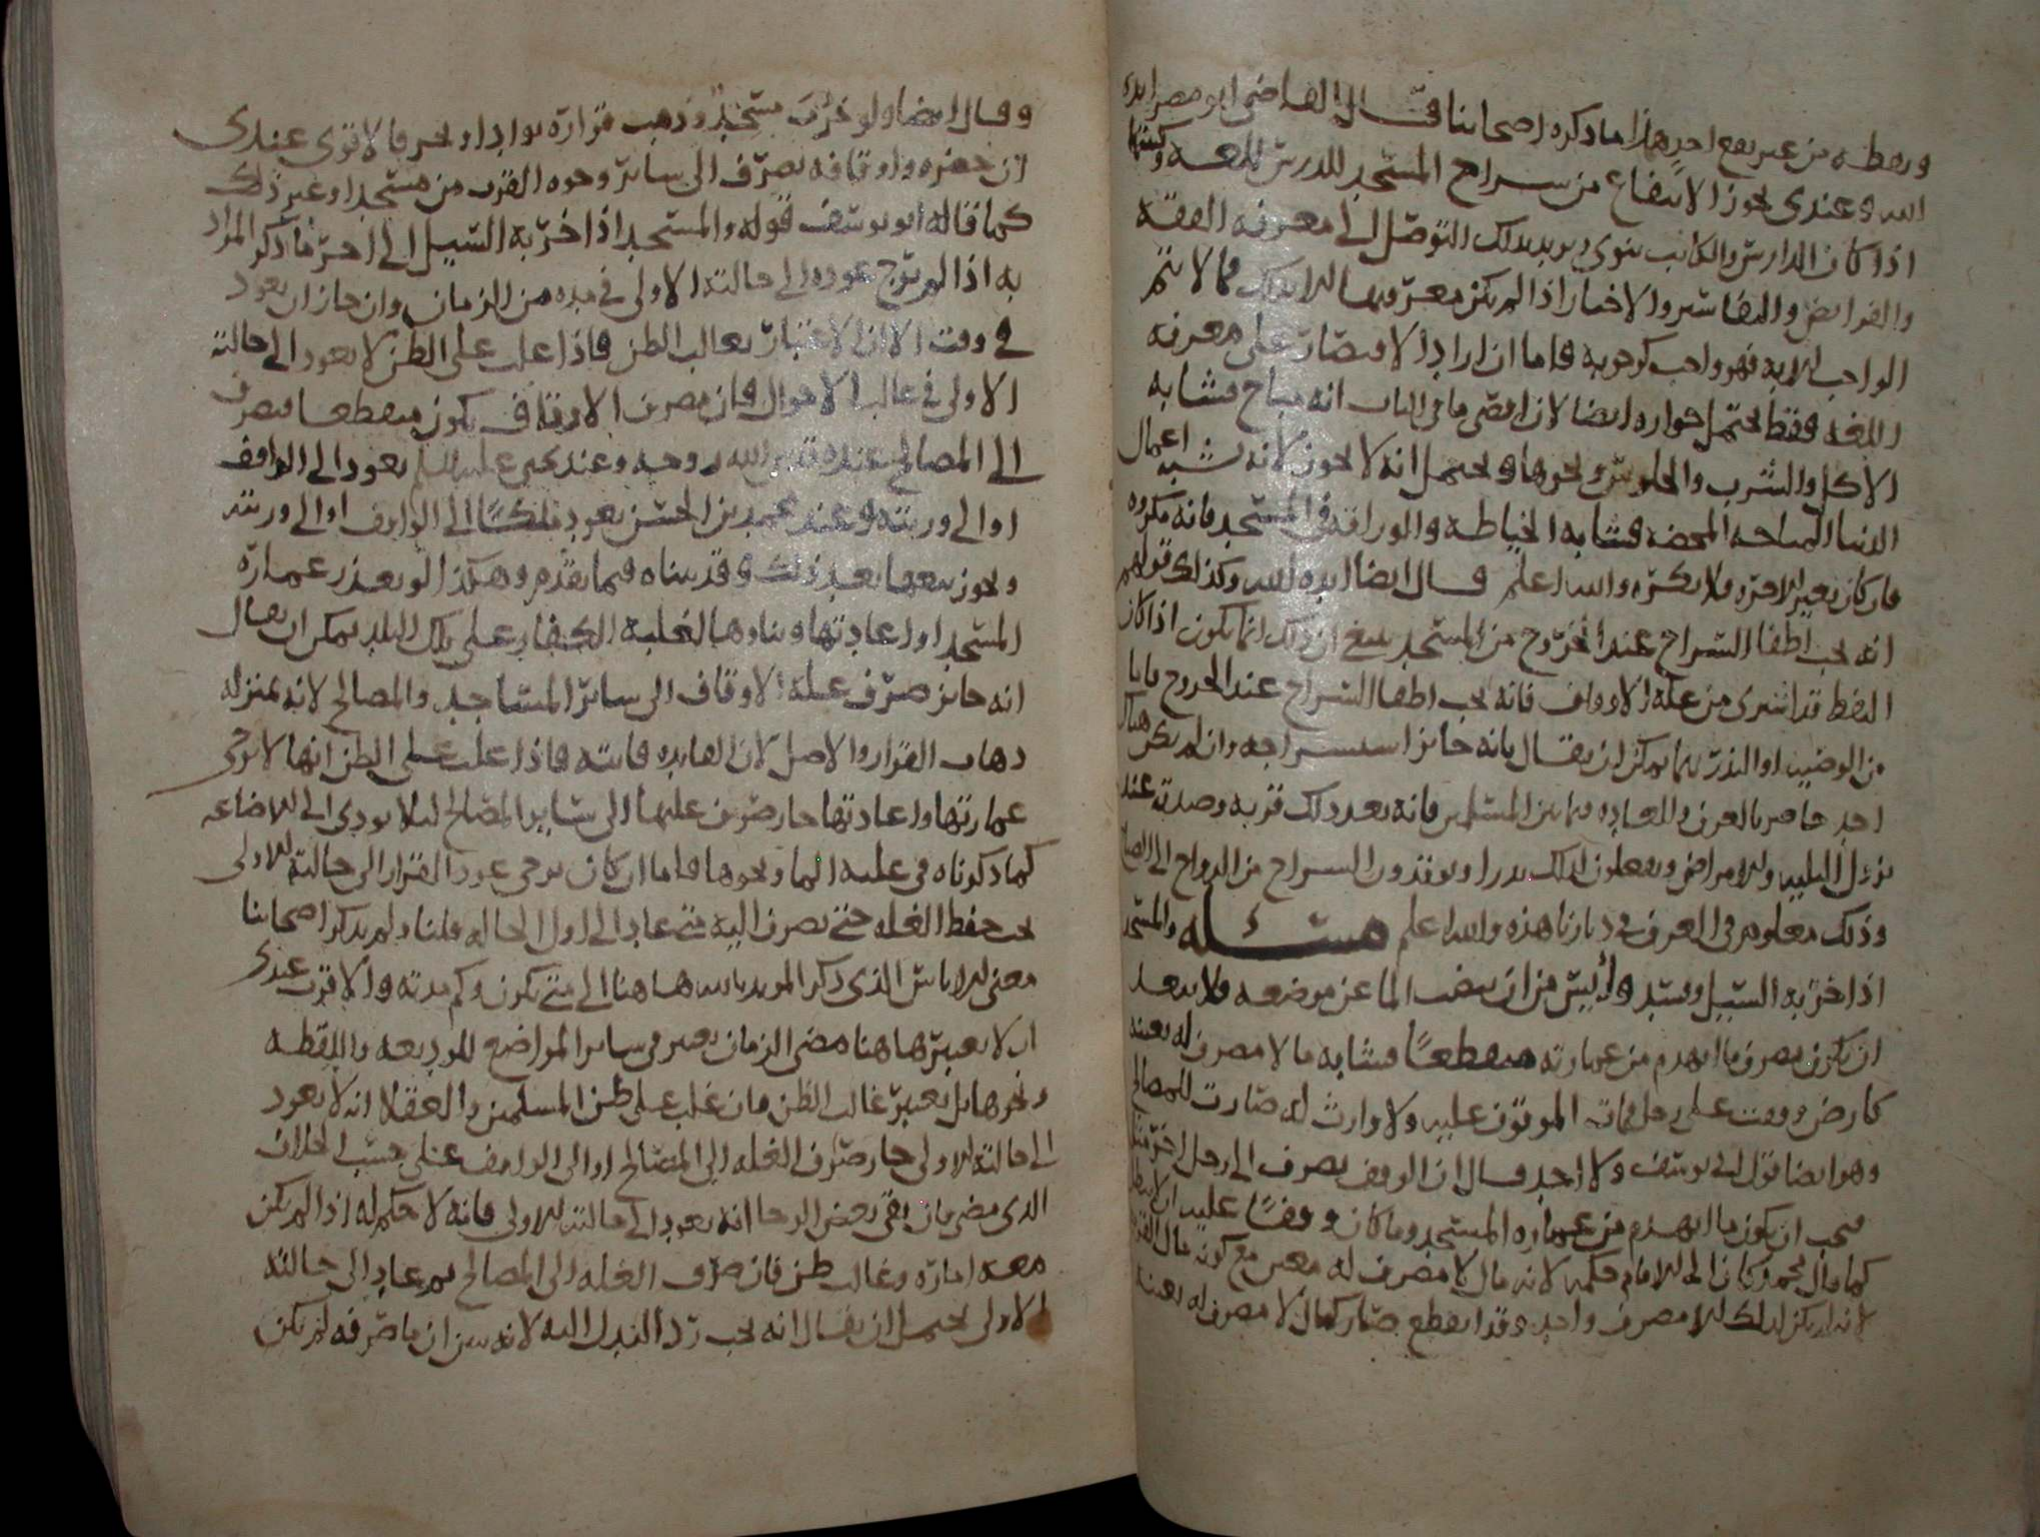 ويعطه من غير نفع احد هذا ما ذكره اصحابنا قال القاضي ابو مضر ايده
الله وعندي يجوز الانتفاع من سراج المسجد للدرس للغة وكتبها
اذا كان الدارس والكاتب ينوي ويريد بذلك التوصل الى معرفة الفقه
والفرايض والتفاسير والاخبار اذا لم يكن معرفتها الا بذلك فما لا يتم
الواجب الا به فهو واجب كوجوبه فاما ان اراد الاقتصار على معرفه
اللغه فقط يحتمل جوازه ايضا لان اقصى ما في الباب انه مباح فشابه
الاكل والشرب والجلوس ونحوها ويحتمل انه لا يجوز لانه شبه اعمال
الدنيا المباحه المحضه فشابه الخياطه والوراقه في المسجد فانه مكروه
فان كان بغير الاجره فلا يكره والله اعلم قال ايضا ايده الله وكذلك قولهم
انه يجب اطفا السراج عند الخروج من المسجد ينبغي ان ذلك انما يكون اذا كان
النفط قد اشترى من غله الاوقاف فانه يجب اطفا السراج عند الخروج فاما
من الوصيه او النذر بها يمكن ان يقال بانه جايز استسراجه وان لم يكن هناك
احد حاضر بالعرف والعاده فيما بين المسلمين فانه يعد ذلك قربه وصدقه عند
نزول البليه والامراض ويفعلون ذلك نذرا ويوقدون السراج من الرواح الى الصباح
وذلك معلوم في العرف في ديارنا هذه والله اعلم مسئله والمسجد
اذا خربه السيل وسيد وأيس من ان ينضب الما عن موضعه فلا يبعد
ان يكون مصرف ما انهدم من عمارته منقطعا فشابه ما لا مصرف له بعينه
كارض وقفت على رجل فمات الموقوف عليه ولا وارث له صارت للمصالح
وهو ايضا قول ابي يوسف ولا احد قال ان الوقف يصرف الى رجل اخر مثله
فيجب ان يكون ما انهدم من عماره المسجد وما كان وقفا عليه ان لا يبطل
كما قال محمد وكان الى الامام حكمه لانه مال لا مصرف له معين مع كونه مال القربه
لانه لم يكن لذلك الا مصرف واحد وقد انقطع صار كمال لا مصرف له بعينه
وقال ايضا ولو خرب مسجد وذهب قراره بواد او بحر فالاقوى عندي
ان حصره واوقافه يصرف الى سائر وجوه القرب من مسجد او غير ذلك
كما قاله ابو يوسف قوله والمسجد اذا خربه السيل الى اخر ما ذكر المراد
به اذا لم يرج عوده الى حالته الاولى في مده من الزمان وان جاز ان يعود
في وقت الا ان الاعتبار بغالب الظن فاذا غلب على الظن لا يعود الى حالته
الاولى في غالب الاحوال فان مصرف الاوقاف يكون منقطعا فيصرف
الى المصالح عنده قدس الله روحه وعند يحيى عليه السلم يعود الى الواقف
او الى ورثته وعند محمد بن الحسن يعود ملكا الى الواقف او الى ورثته
ويجوز بيعها بعد ذلك وقد بيناه فيما تقدم وهكذا لو تعذر عمارة
المسجد او اعادتها وبناوها لغلبة الكفار على تلك البلد يمكن ان يقال
انه جايز صرف غلة الاوقاف الى سائر المساجد والمصالح لانه بمنزلة
ذهاب القرار والاصل لان الفايده فايته فاذا غلب على الظن انها لا ترجى
عمارتها واعادتها جاز صرف غلتها الى سائر المصالح لئلا يودي الى الاضاعه
كما ذكرناه في غلبه الما ونحوها فاما ان كان يرجى عود القرار الى حالته الاولى
يجب حفظ الغله حتى يصرف اليه متى عاد الى اول الحاله قلنا ولم يذكر اصحابنا
معنى الاياس الذي ذكر المويد بالله هاهنا الى متى يكون وكم مدته والاقرب عندي
ان لا يعتبر هاهنا مضي الزمان يعتبر في ساير المواضع للوديعه واللقطه
ونحوها بل يعتبر غالب الظن فان غلب على ظن المسلمين والعقلا انه لا يعود
الى حالته الاولى جاز صرف الغله الى المصالح او الى الواقف على حسب الخلاف
الذي مضى فان بقي بعض الرجا انه يعود الى حالته الاولى فانه لا حكم له اذا لم يكن
معه امارة وغالب ظن فان صرف الغله الى المصالح ثم عاد الى حالته
الاولى يحتمل ان يقال انه يجب رد البدل اليه لانه تبين ان ما صرفه لم يكن